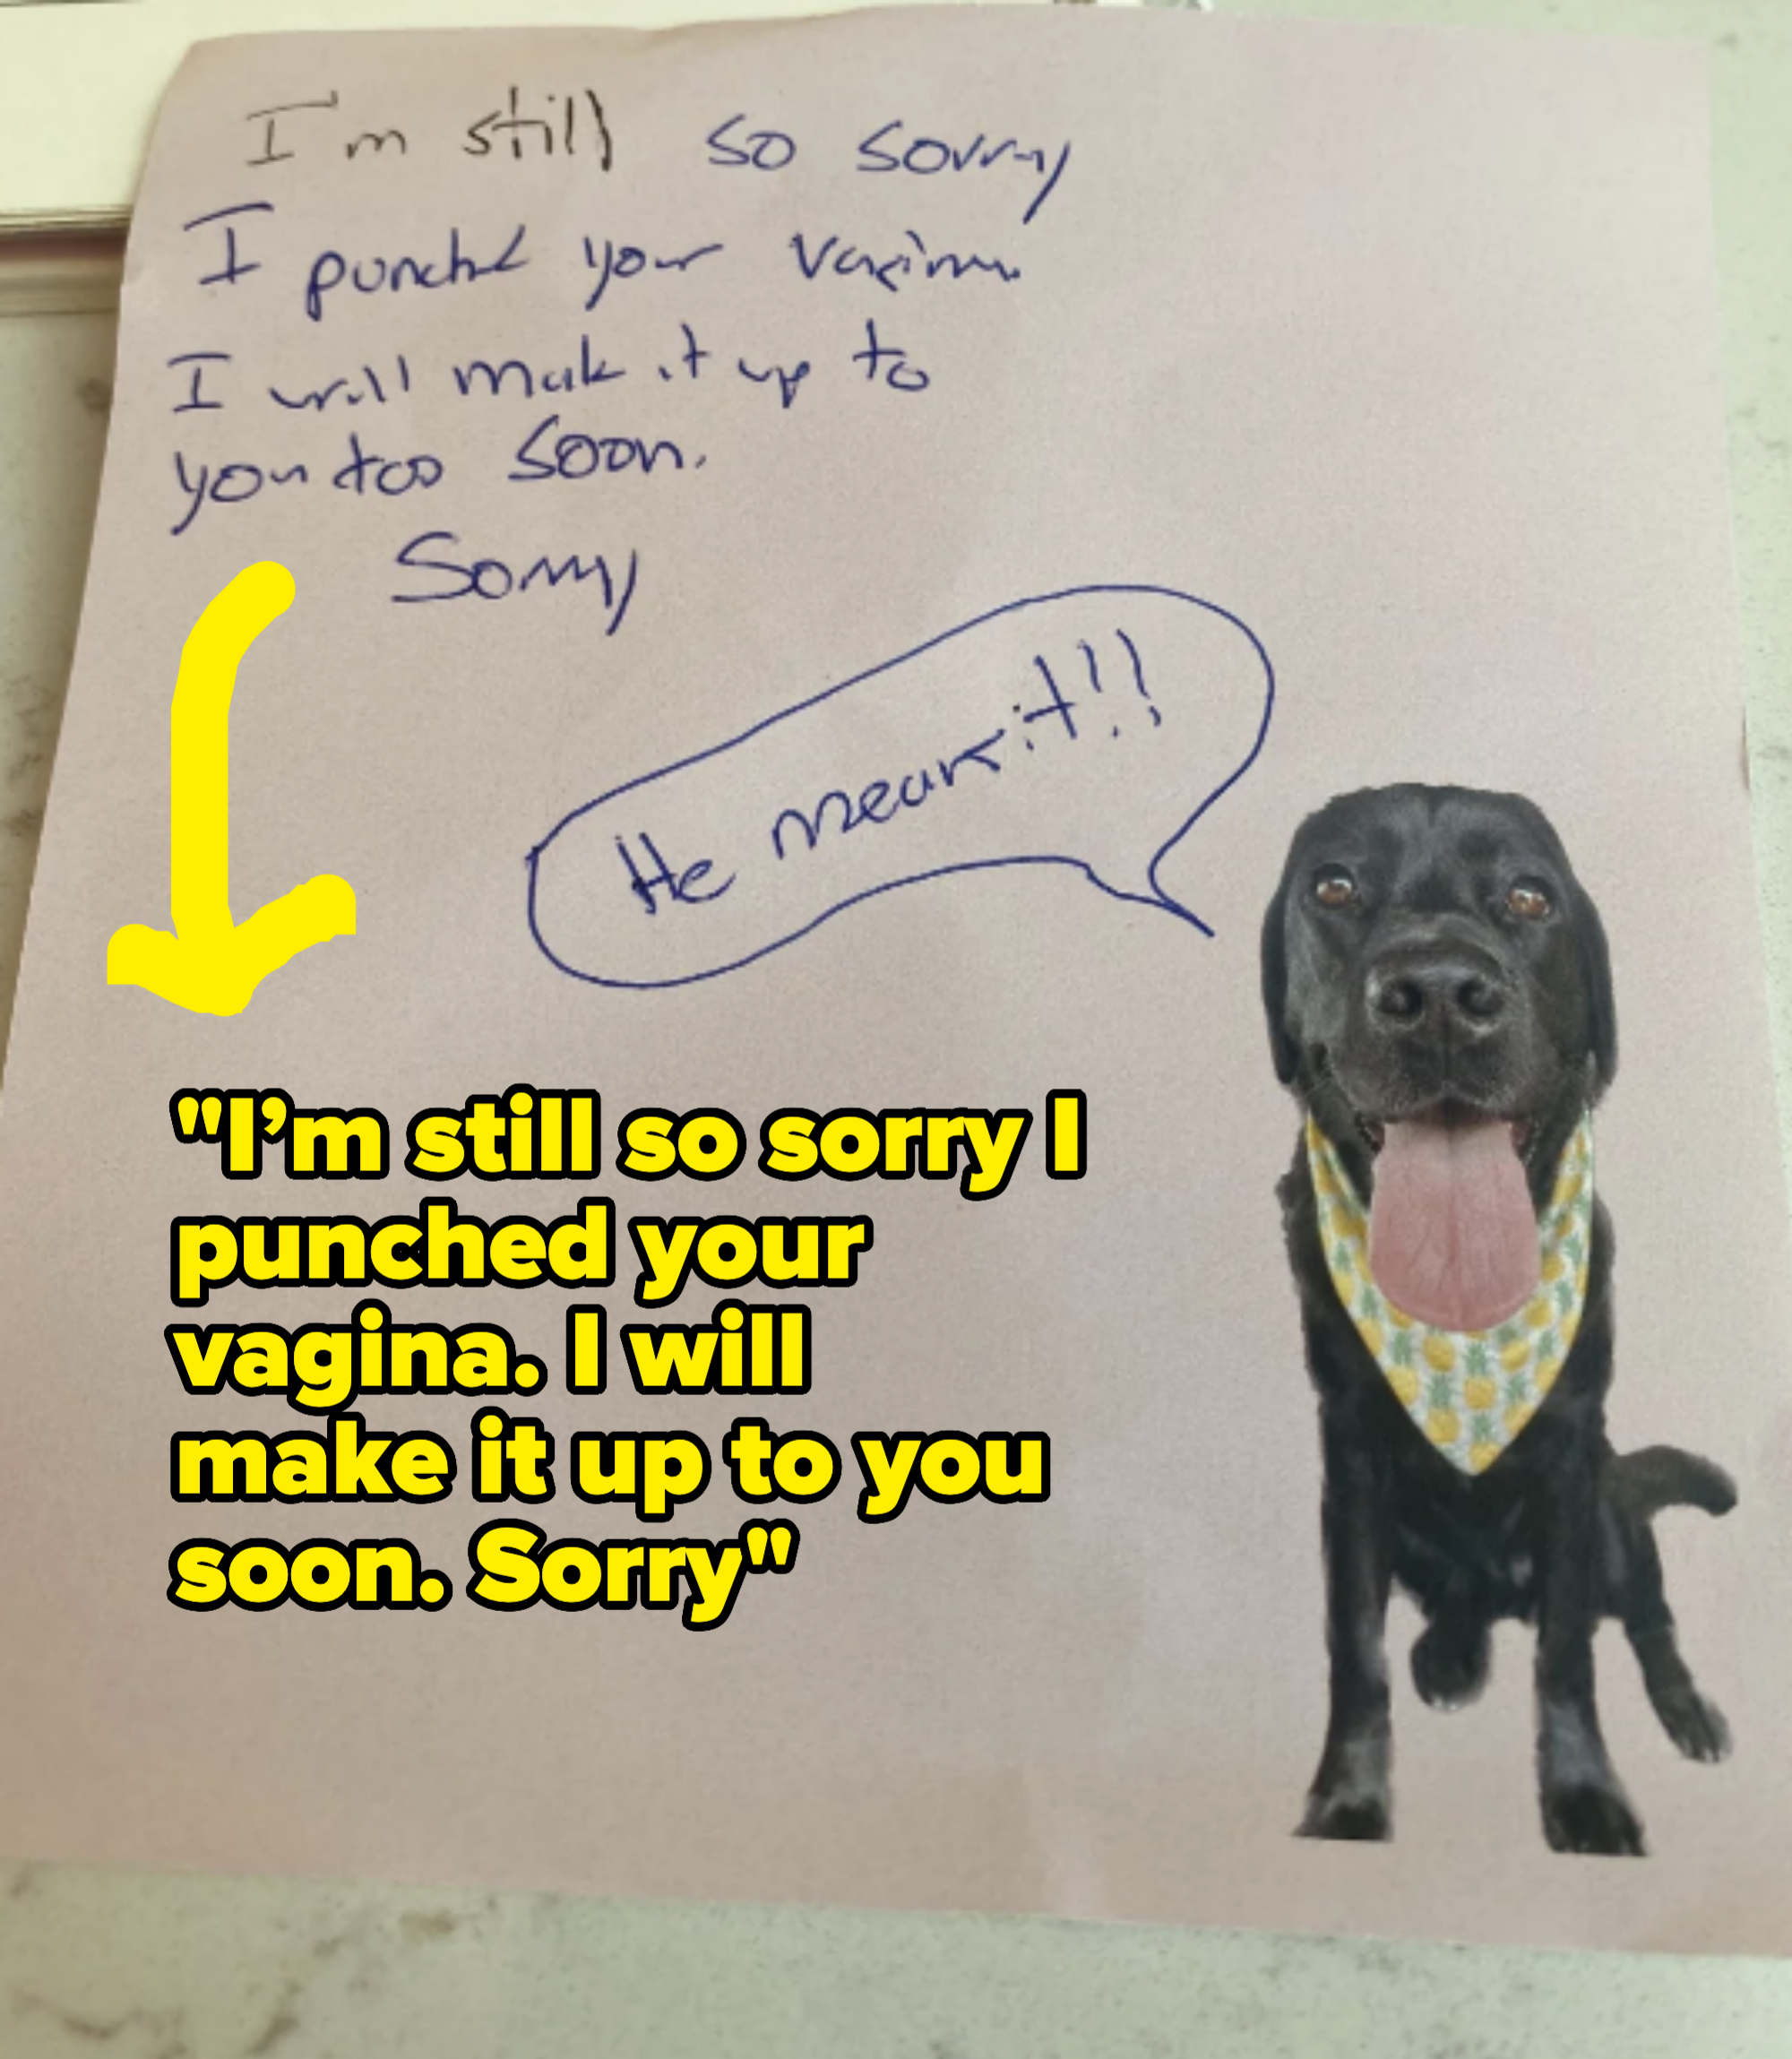 I'm still so sorry
I puncht your vagina
I will make it up to
you too soon.
Sorry
He means it!!
"I'm still so sorry I
punched your
vagina. I will
make it up to you
soon. Sorry"